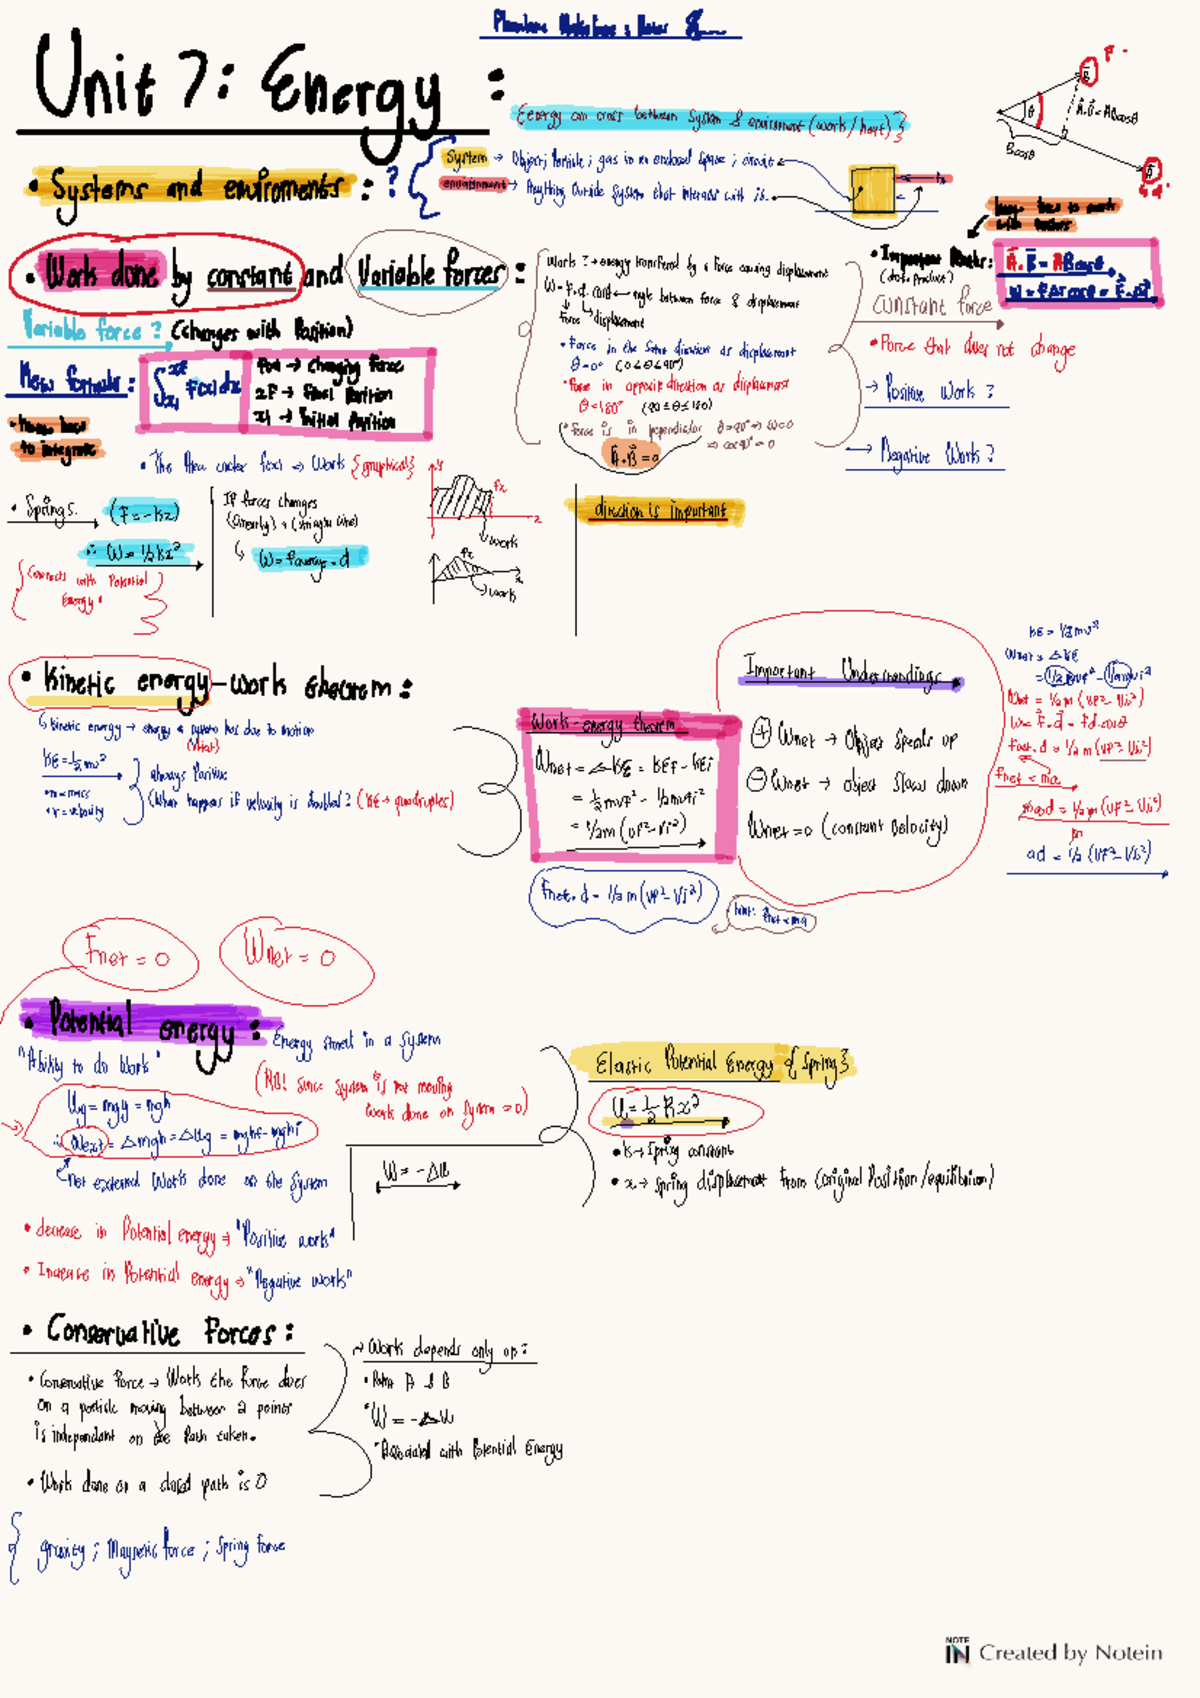 Unit 7: Energy :
{energy can cross between System & enviroment (work/heat)}
• Systems and enviroments : ?
System → Object; Particle; gas in an enclosed space; circuit
enviroment → Anything outside system that interacts with it.
θ
A·B = ABcosθ
Bcosθ
• Work done by constant and Variable forces :
Work ? → energy transferred by a force causing displacement
W = F·d·cosθ ← angle between force & displacement
force
displacement
• Force in the same direction as displacement
θ=0° (0≤θ≤90°)
• Force in opposite direction as displacement
θ=180° (90≤θ≤180)
• force is in perpendicular θ=90° → W=0
→ cos90°=0
A·B = 0
• Important Maths:
(dot product)
A·B = ABcosθ
W = FΔrcosθ = F·Δr
Constant force
• Force that does not change
→ Positive Work ?
→ Negative Work ?
Variable force ? (changes with Position)
New formula :
∫ f(x) dx
f(x) → Changing force
xF → Final Position
xi → Initial Position
to integrate
• The Area under f(x) → Work {graphical}
work
work
direction is important
• Springs.
(F=-kx)
∴ W = 1/2kx²
{Connects with Potential
Energy}
If forces changes
(linearly) → (straight line)
W = Faverage · d
• Kinetic energy-work theorem :
↳ kinetic energy → energy a system has due to motion
KE = ½mv²
• m = mass
• v = velocity
always Positive
(What happens if velocity is doubled? (KE → quadruples)
Work-energy theorem
Wnet = ΔKE = KEf - KEi
= ½mvF² - 1/2mvi²
= 1/2m (vF² - vi²)
Fnet·d = 1/2 m(vF² - vi²)
hint: Fnet = ma
Important Understandings
⊕ Wnet → Object Speeds up
⊖ Wnet → object slows down
Wnet = 0 (constant velocity)
KE = 1/2mv²
Wnet = ΔKE
= 1/2mvF² - 1/2mvi²
Wnet = 1/2m (vF² - vi²)
W = F·d = Fdcosθ
Fnet·d = 1/2 m (vF² - vi²)
Fnet = ma
mad = 1/2m (vF² - vi²)
m
ad = 1/2 (vF² - vi²)
Fnet = 0
Wnet = 0
• Potential energy : Energy stored in a System
"Ability to do Work"
(NB! Since System is not moving
Work done on System = 0)
Ug = mgy = mgh
∴ Wext = Δmgh = ΔUg = mghf - mghi
net external Work done on the System
W = -ΔU
• decrease in Potential energy → "Positive work"
• Increase in Potential energy → "Negative work"
Elastic Potential Energy {Spring}
U = ½kx²
• k → Spring constant
• x → spring displacement from (original Position/equilibrium)
• Conservative Forces :
• Conservative force → Work the force does
on a particle moving between 2 points
is independant on the Path taken.
• Work done on a closed path is 0
→ Work depends only on :
• Points A & B
• W = -ΔU
• Associated with Potential Energy
{ gravity ; Magnetic Force ; Spring force
NOTE IN Created by Notein